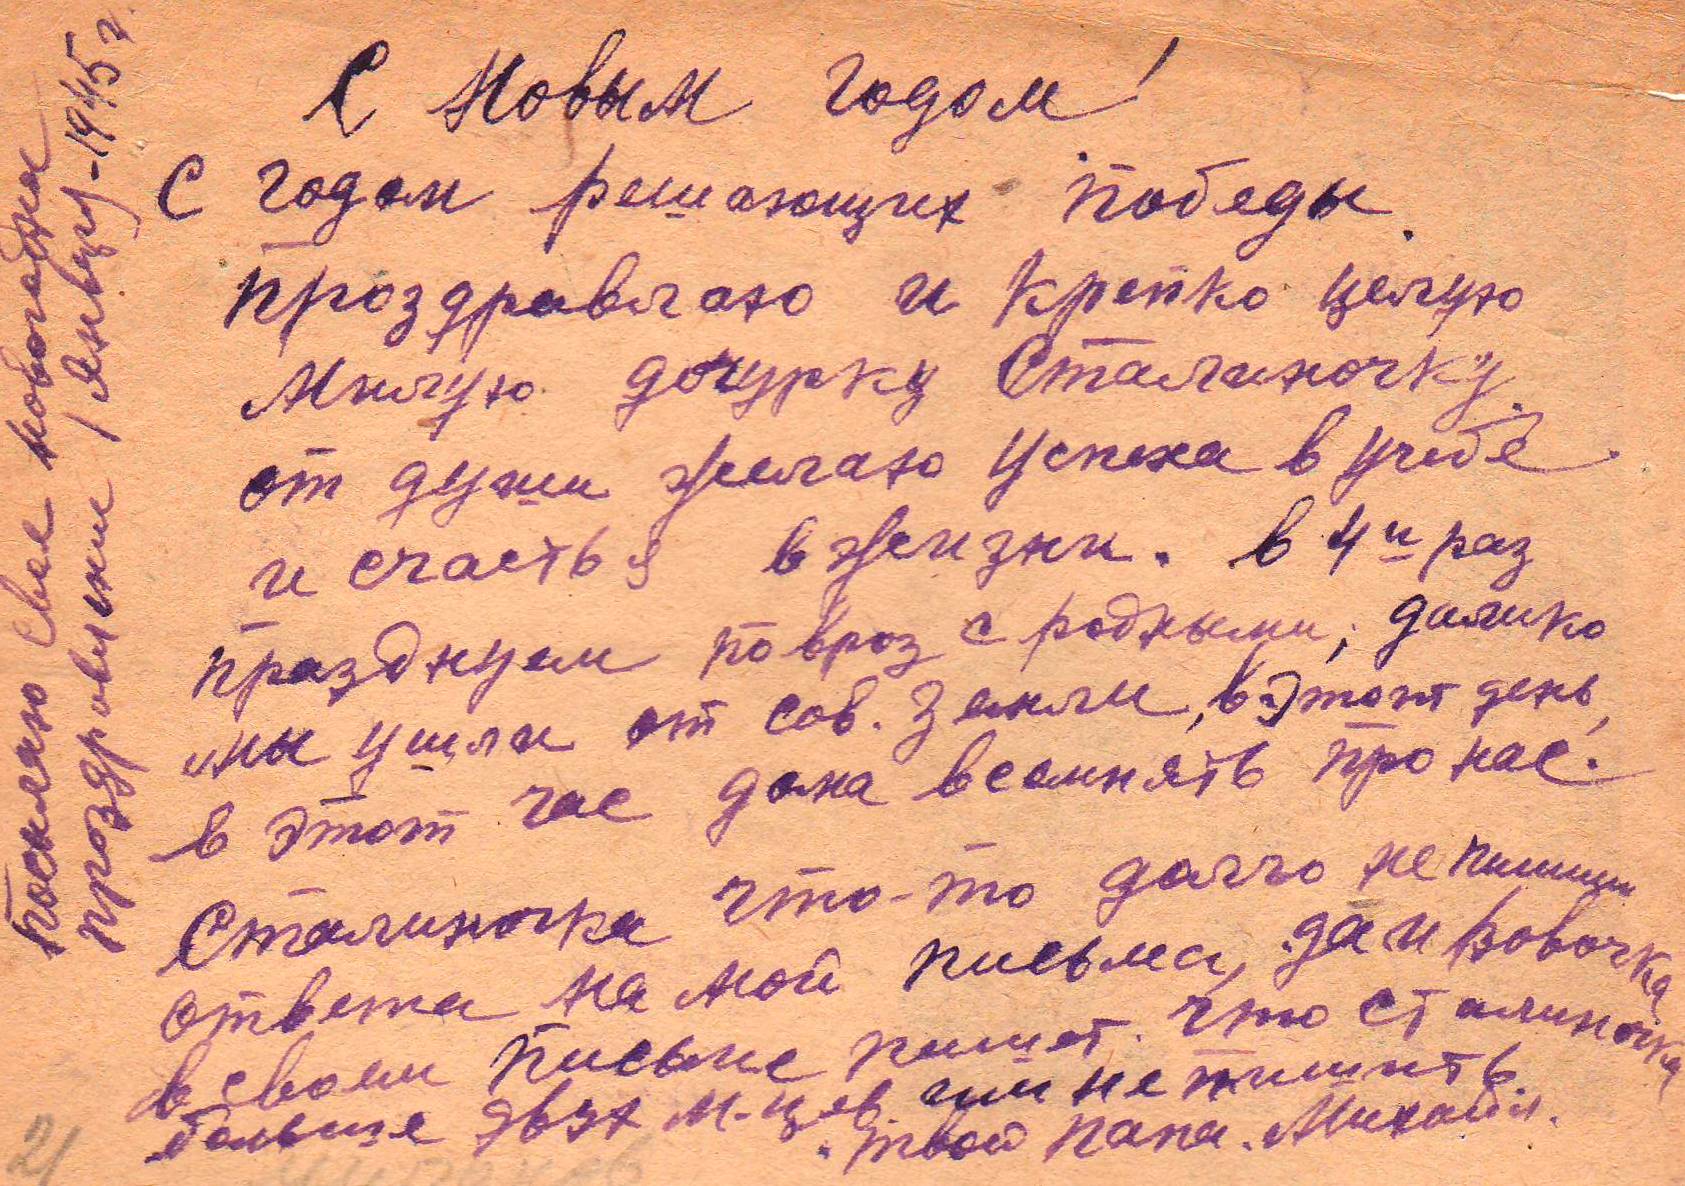 С Новым годом!
С годом решающих победы.
Проздравляю и крепко целую
милую дочурку Сталиночку,
от души желаю успеха в учебе.
и счастья в жизни. в 4й раз
празднуем поврозь с родными, далико
мы ушли от сов. земли, в этот день,
в этот час дома вспомнять про нас.
Сталиночка что-то долго не пишиш
ответа на мои письма, да и Вовочка
в своем письме пишет. что Сталиночка
больше двух м-цев им не пишить.
твой папа. Михаил.
Посылаю свое новогоднии
проздровление 1 январу-1945 г.
21